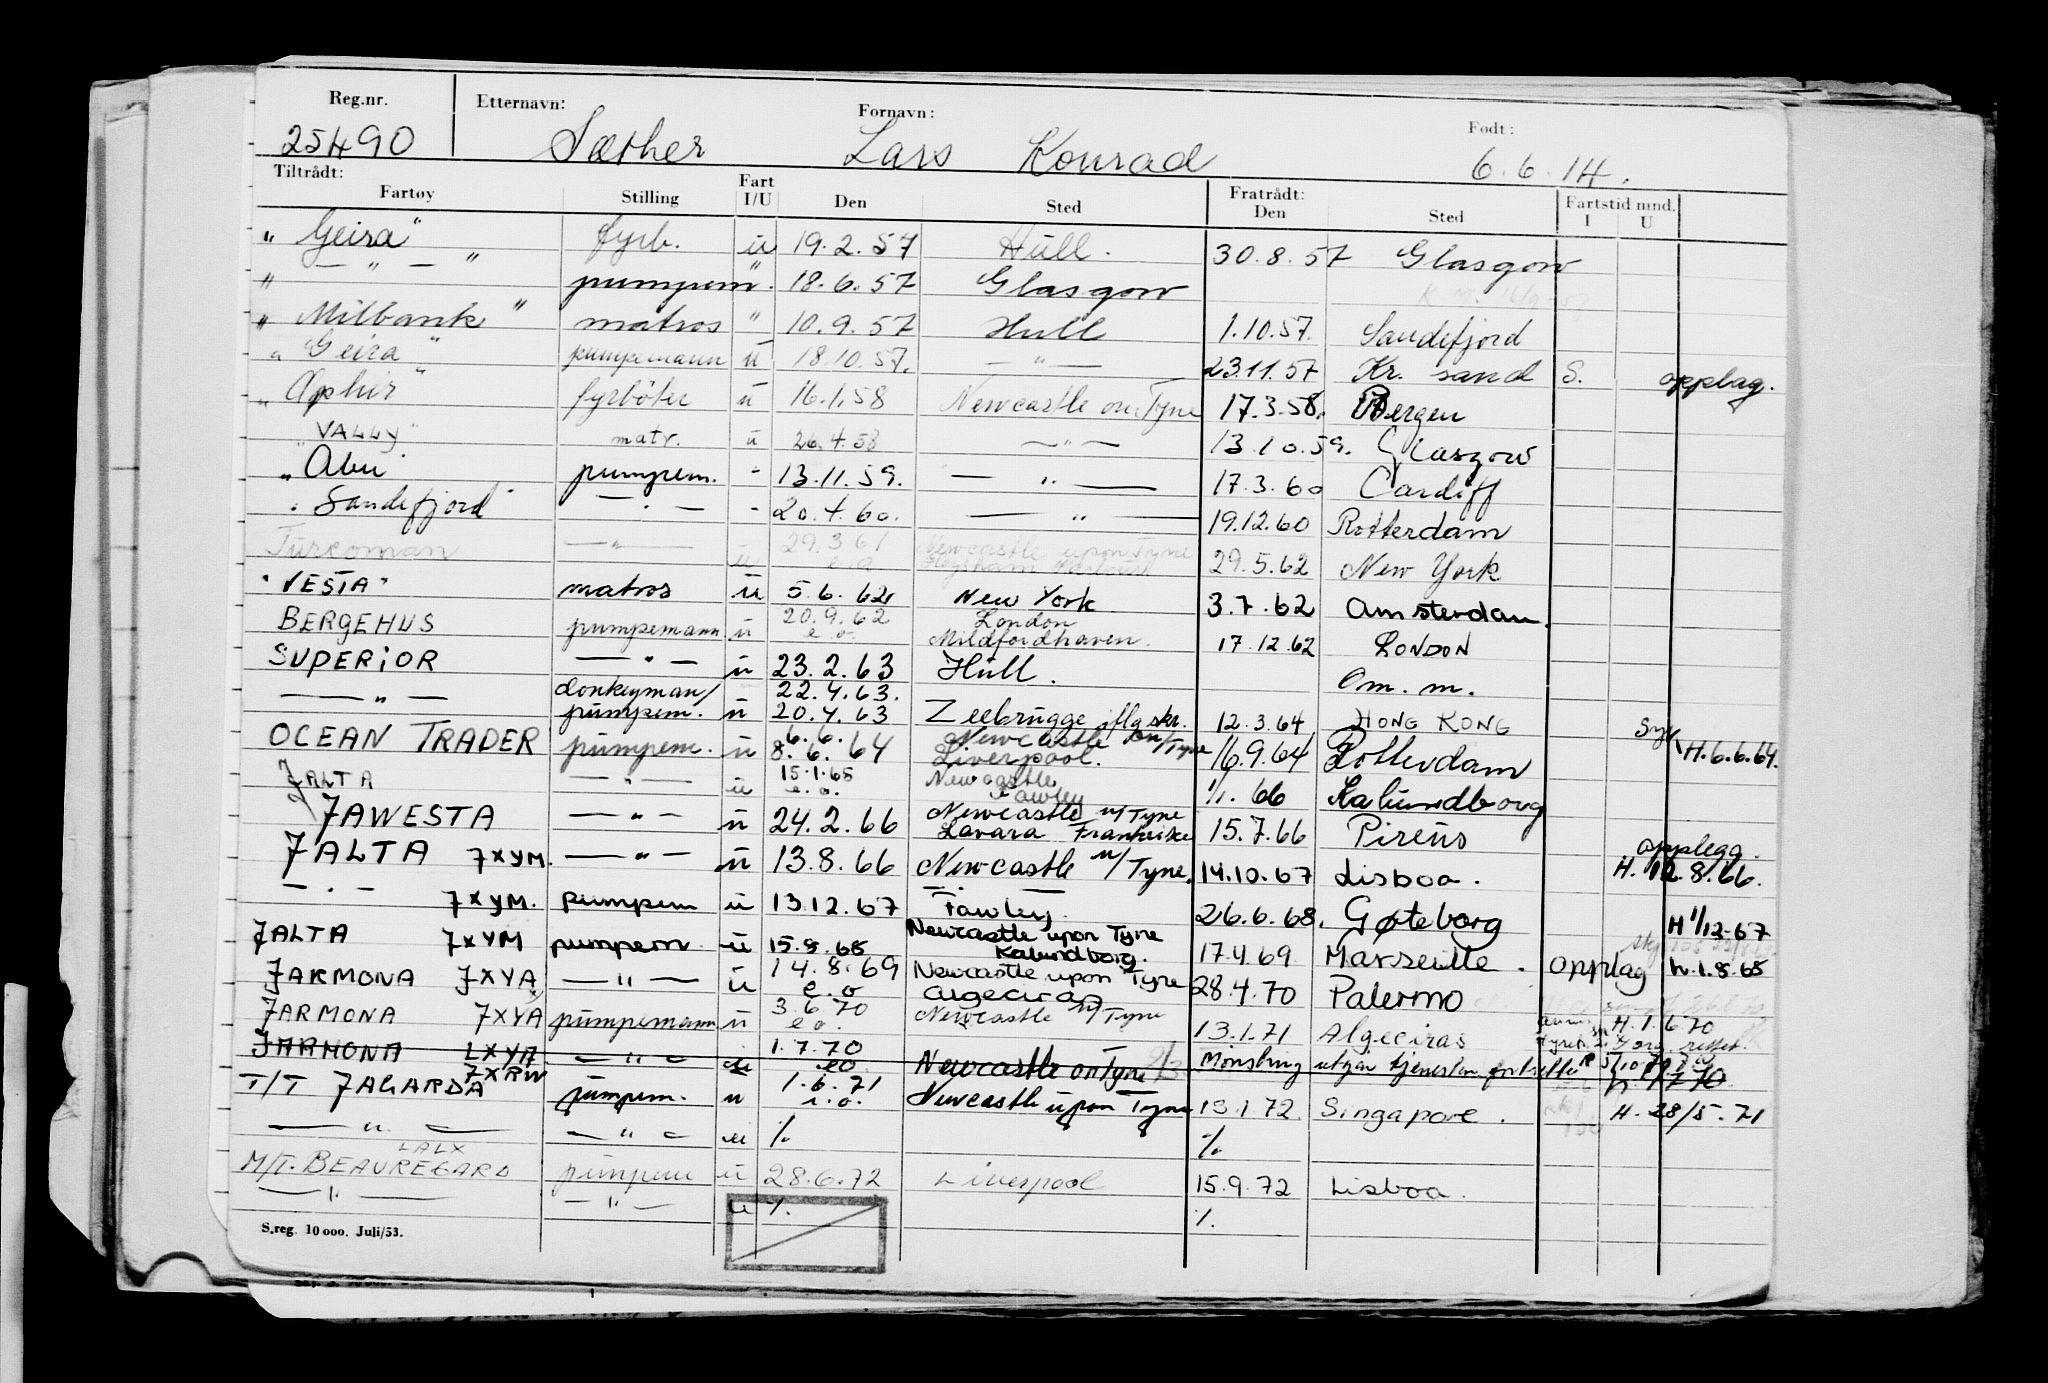 Reg.nr. Etternavn: Fornavn: Født:
25490 Sæther Lars Konrad 6.6.14.
Tiltrådt: Fratrådt:
Fartøy Stilling Fart I/U Den Sted Den Sted Fartstid mnd. I U
" Geira" fyrb. u 19.2.57 Hull. 30.8.57 Glasgow
" — " — " pumpem " 18.6.57 Glasgow
" Milbank " matros " 10.9.57 Hull 1.10.57. Sandefjord
" Geira " pumpemann u 18.10.57. — " — 23.11.57 Kr. sand S. opplag.
" Ophir" fyrböter u 16.1.58 Newcastle on Tyne 17.3.58. Bergen
"VALLY" matr. u 26.4.58 — " — 13.10.59. Glasgow
" Abu pumpem. - 13.11.59. — " — 17.3.60 Cardiff
" Sandefjord — " — - 20.4.60. — " — 19.12.60 Rotterdam
Turcoman — " — u 29.3.61 e.o Newcastle upon Tyne Heysham 29.5.62 New York
"VESTA" matros u 5.6.62 New York 3.7.62 Amsterdam.
BERGEHUS pumpemann u 20.9.62 e.o. London Mildfordhaven. 17.12.62 LONDON
SUPERIOR — " — u 23.2.63 Hull. Om. m.
— " — donkeyman/ pumpem. u 22.4.63. 20.4.63 Zeebrugge iflg skr. 12.3.64 HONG KONG Syk H.6.6.64.
OCEAN TRADER pumpem. u 6.6. 8.6.64 Newcastle on/Tyne Liverpool. 16.9.64 Rotterdam
JALTA — " — u 15.1.65 e.o. Newcastle Fawley 1/1.66 Kalundborg
JAWESTA — " — u 24.2.66 Newcastle u/Tyne Lavara Frankrike 15.7.66 Pireus opplegg.
JALTA 7XYM. — " — u 13.8.66 Newcastle u/Tyne. 14.10.67 Lisboa. H. 12.8.66.
— . — 7XYM. pumpem u 13.12.67 Fawley. 26.6.68. Gøteborg H 1/12-67
JALTA 7XYM pumpem u 15.8.68 Newcastle upon Tyne Kalundborg. 17.4.69 Marseille. opplag h.1.8.68
JARMONA JXYA — " — u 14.8.69 e.o Newcastle upon Tyne Algeciras 28.4.70 Palermo
JARMONA 7XYA pumpemann u 3.6.70 e.o. Newcastle u/Tyne 13.1.71 Algeciras H.1.6.70
JARMONA LXYA — " — u 1.7.70 eo Newcastle on Tyne Mönstring utgår tjenesten fortsetter
T/T JAGARDA 7XRW pumpem. u 1.6.71 e.o. Newcastle upon Tyne 15.1.72 Singapore. H. 28/5.71
— " — — " — u % %
M/T. BEAUREGARD LALX pumpem u 28.6.72 Liverpool 15.9.72 Lisboa.
— " — — " — u %. %.
S.reg. 10 000. Juli/53.